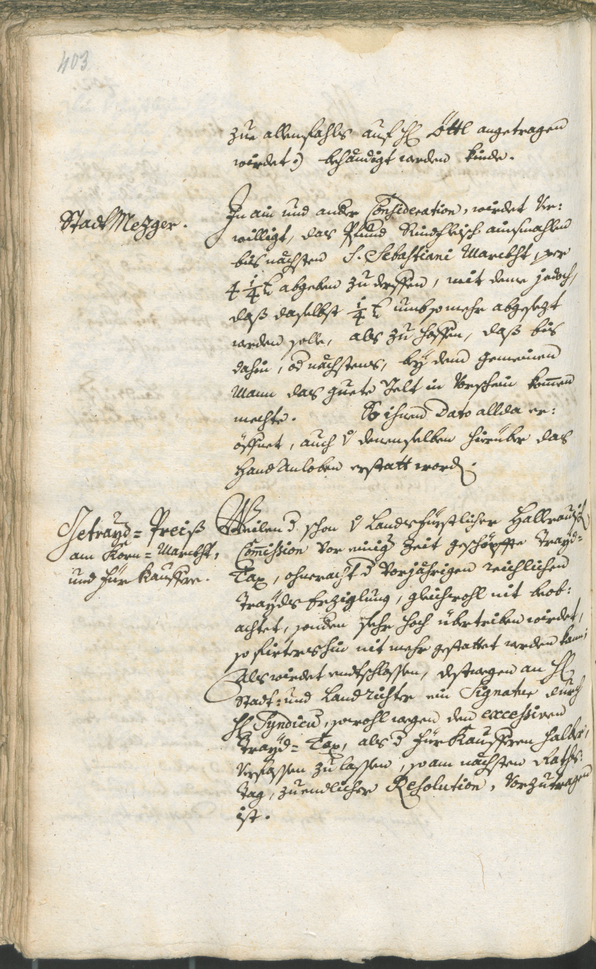 403
zu allenfahls auf H: Öttl angetragen
wirdet :) behändigt werden künde.
Stadt Mezger.
In ain und ander Consideration, wirdet ver:
williget, das Pfund Rindfleisch ainsmahlen
bis nächsten S. Sebastiani Marckht, per
4 1/4 x abgeben zu derffen, mit deme jedoch,
daß daselbst 1/4 x umb so mehr abgesezt
werden solle, als zu hoffen, daß bis
dahin, od nächstens, bey dem gemeinen
Mann das guete Gelt in Vorschein kommen
mechte. So ihnen Dato allda er:
öffnet, auch v denenselben hierüber das
Handanloben erstatt word.
Getrayd=Preiß
am Korn=Marckht,
und Fürkauffere.
Weilen d schon v Landsfürstlicher Hallrauth
Commission vor einig Zeit geschöpffte Trayd=
Tax, ohneracht d vorjährigen reichlichen
Trayds erziglung, gleichwohl nit beob:
achtet, sondern sehr hoch übertriben wirdet,
so firtershin nit mehr gestattet werden kann,
Als wirdet entschlossen, destwegen an H:
Stadt= und Landrichter ein Signatur durch
H: Syndicu, sowohl wegen dem excessiven
Trayd=Tax, als d Fürkaufferen halber,
verfassen zu lassen, so am nächsten Raths=
Tag, zu endlicher Resolution, vorzutragen
ist.